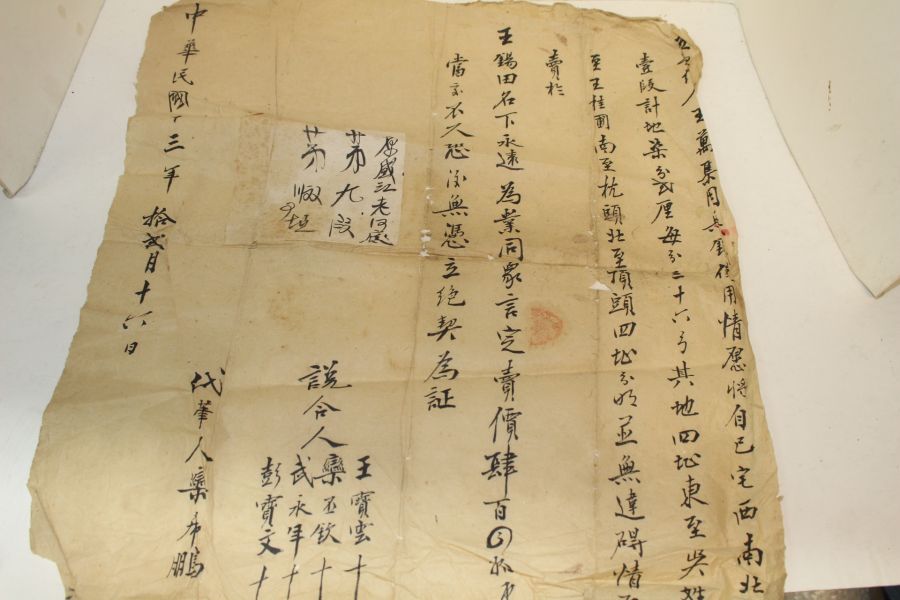 王萬集因無錢使用情愿將自己宅西南北
壹段計地柒分貳厘每分二十六弓其地四址東至吳姓
至王桂圃南至杭頭北至頂頭四址分明並無違碍情
賣於
王錫田名下永遠為業同衆言定賣價肆百
當交不欠恐後無憑立絕契為証
老河
第九段
第
說合人
王寶雲十
欒丕欽十
武永年十
彭寶文十
代筆人欒希鵬
中華民國十三年拾弍月十六日